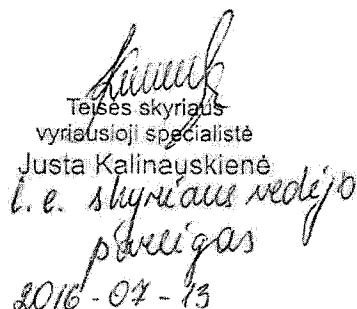 Teisės skyriaus
vyriausioji specialistė
Justa Kalinauskienė
l. e. skyriaus vedėjo
pareigas
2016-07-13